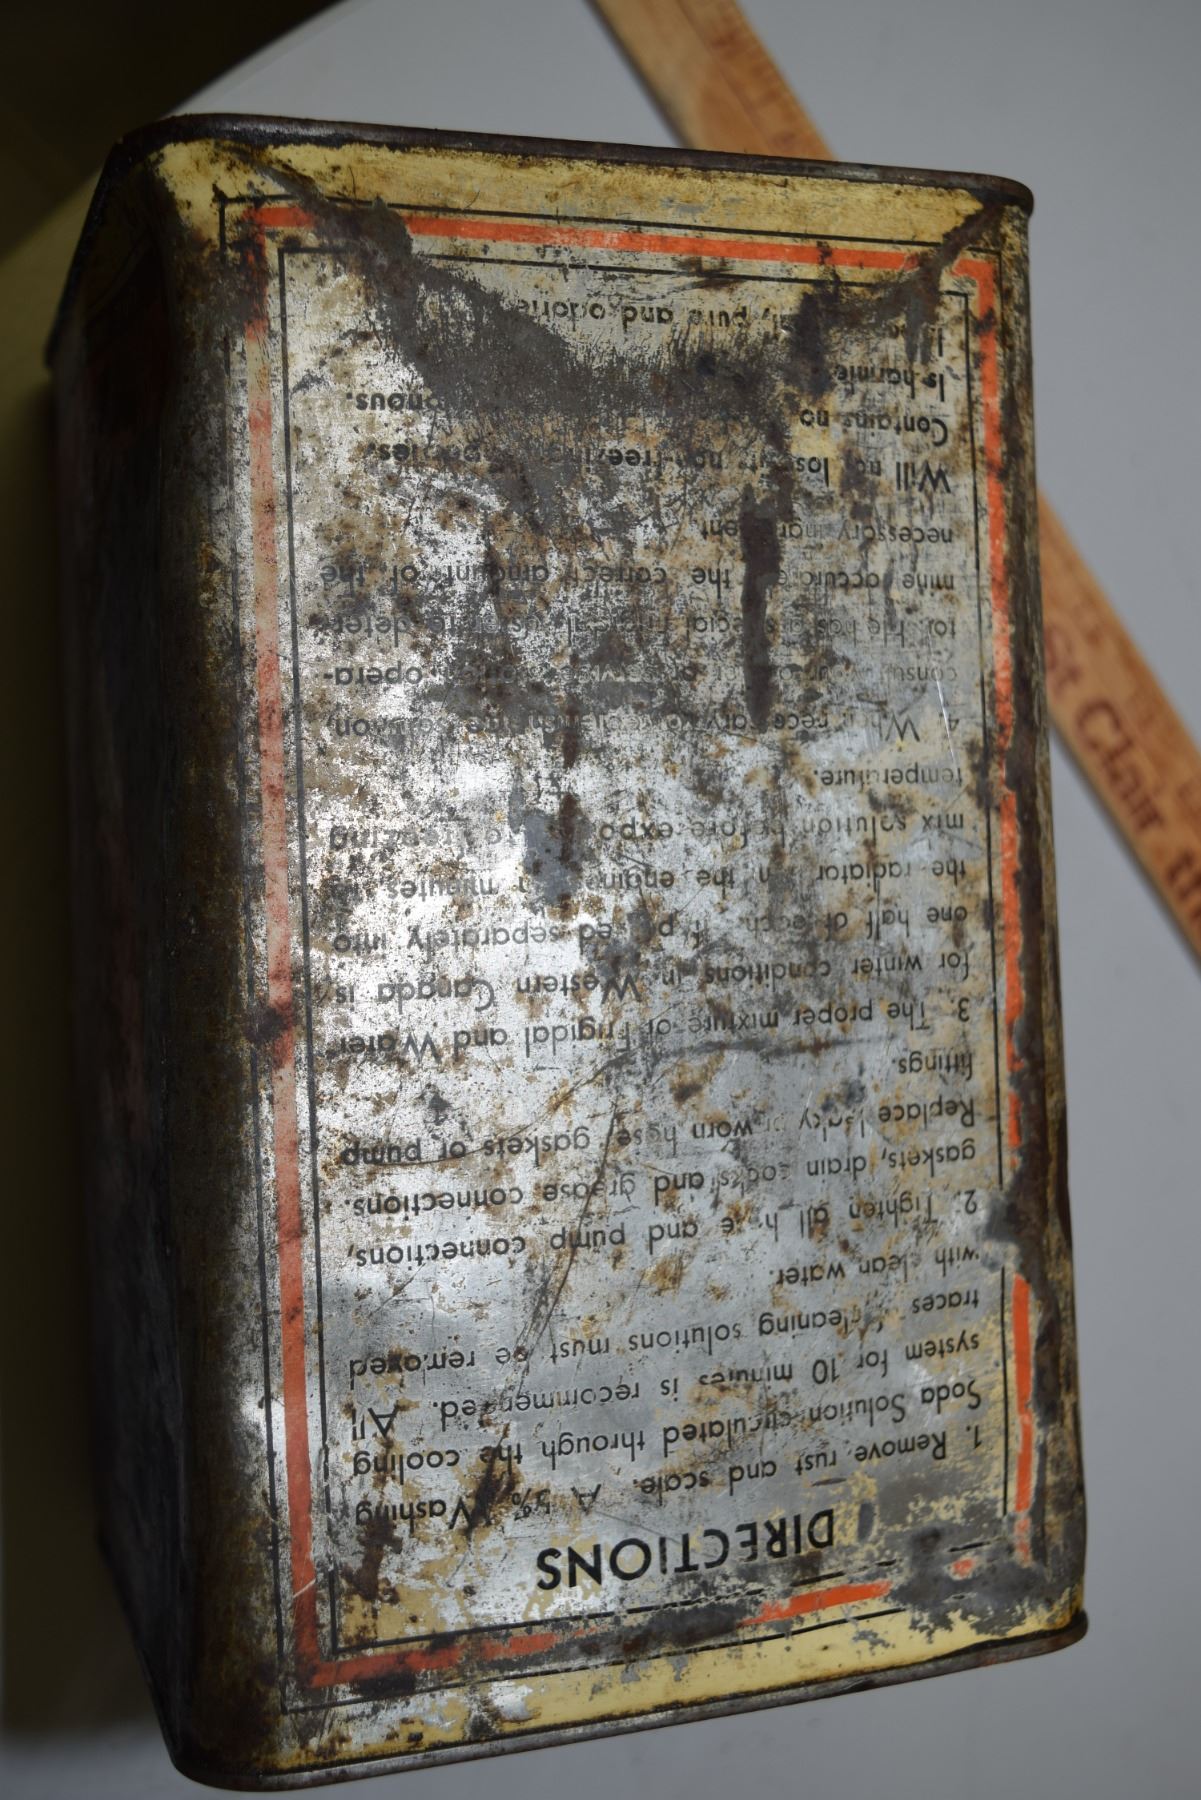 DIRECTIONS
1. Remove rust and scale. A 5% Washing
Soda Solution circulated through the cooling
system for 10 minutes is recommended. All
traces cleaning solutions must be removed
with clean water.
2. Tighten all hose and pump connections,
gaskets, drain cocks and grease connections.
Replace leaky or worn hose, gaskets or pump
fittings.
3. The proper mixture of Frigidal and Water
for winter conditions in Western Canada is
one half of each. If poured separately into
the radiator, run the engine minutes to
mix solution before expo to freezing
temperature.
4. When necessary to replenish the solution,
consult your or service station opera-
tor. He has a special to deter-
mine accurately the correct amount of the
necessary ingredient
Will not lose it non-freezing properties.
Contains no
Is harmle
pure and odorle
St Clair